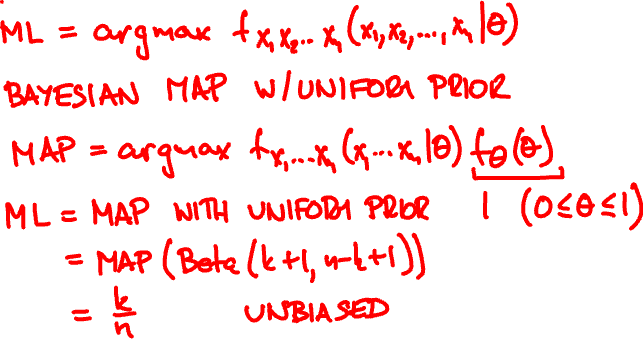 ML = argmax f_{X₁X₂...Xₙ}(x₁,x₂,...,xₙ|θ)
BAYESIAN MAP W/UNIFORM PRIOR
MAP = argmax f_{X₁...Xₙ}(x₁...xₙ|θ) f_θ(θ)
ML = MAP WITH UNIFORM PRIOR 1 (0≤θ≤1)
= MAP(Beta(k+1, n-k+1))
= k/n UNBIASED